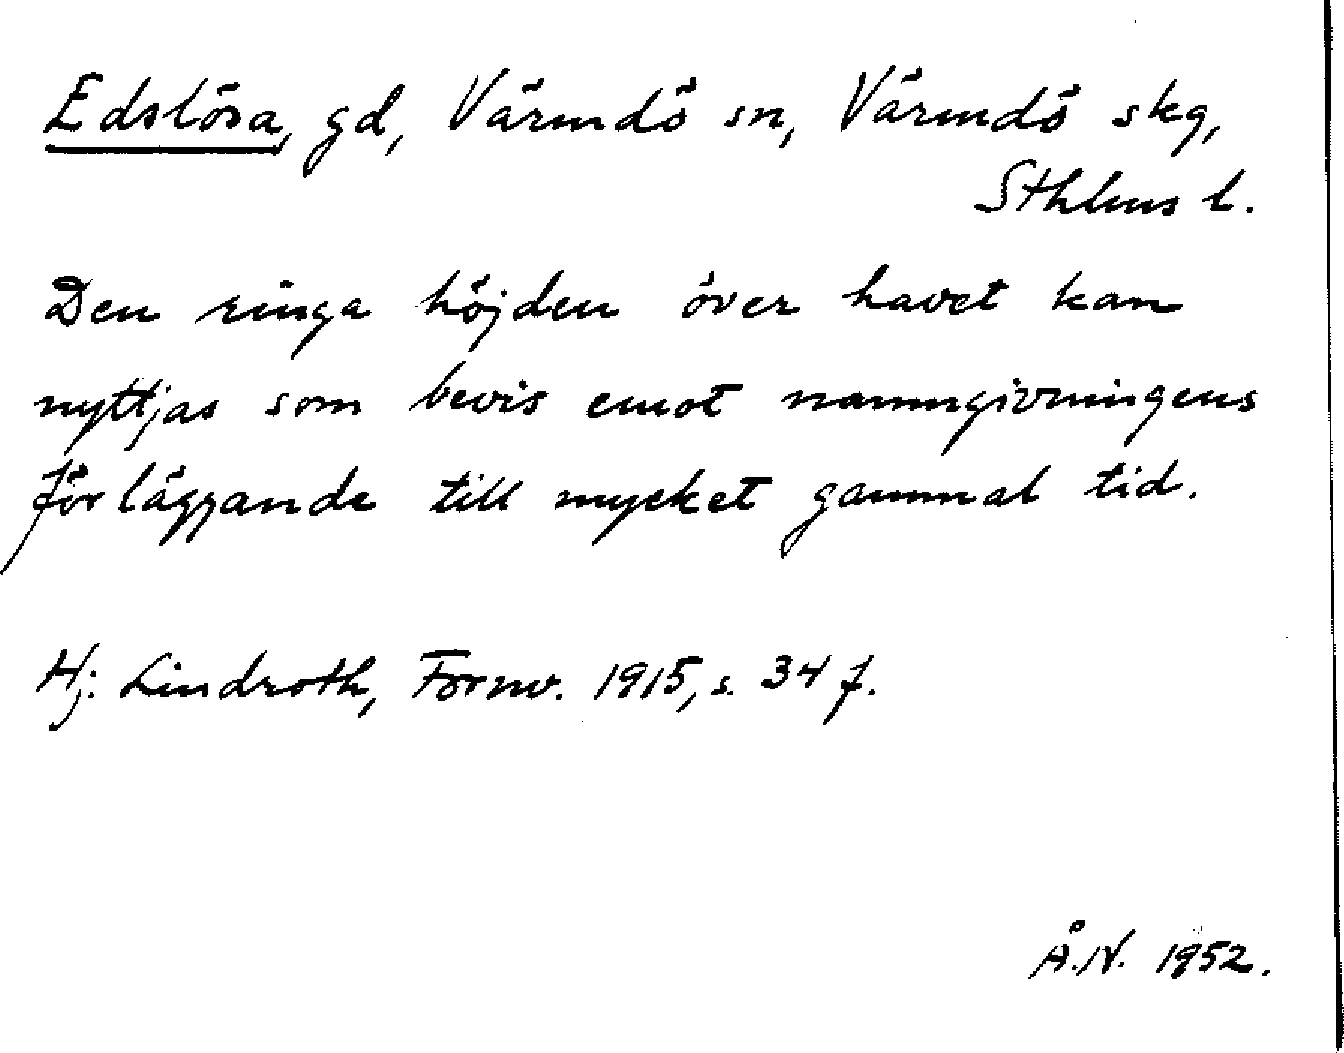 Edslösa, gd, Värmdö sn, Värmdö skg,
Sthlms l.
Den ringa höjden över havet kan
nyttjas som bevis emot namngivningens
förläggande till mycket gammal tid.
Hj. Lindroth, Fornv. 1915, s. 34 f.
Å.N. 1952.